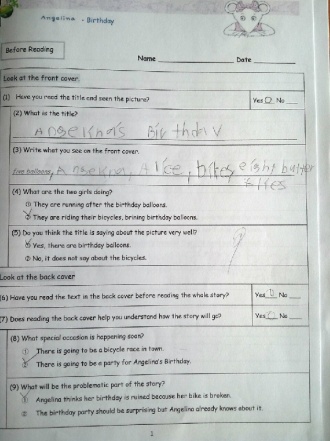 Angelina - Birthday
Before Reading
Name Date
Look at the front cover.
(1) Have you read the title and seen the picture? Yes No
(2) What is the title?
Birthday
(3) Write what you see on the front cover.
five balloons, Alice, bikes, eight
(4) What are the two girls doing?
① They are running after the birthday balloons.
② They are riding their bicycles, brining birthday balloons.
(5) Do you think the title is saying about the picture very well?
① Yes, there are birthday balloons.
② No, it does not say about the bicycles.
Look at the back cover
(6) Have you read the text in the back cover before reading the whole story? Yes No
(7) Does reading the back cover help you understand how the story will go? Yes No
(8) What special occasion is happening soon?
① There is going to be a bicycle race in town.
② There is going to be a party for Angelina's Birthday.
(9) What will be the problematic part of the story?
① Angelina thinks her birthday is ruined because her bike is broken.
② The birthday party should be surprising but Angelina already knows about it.
1